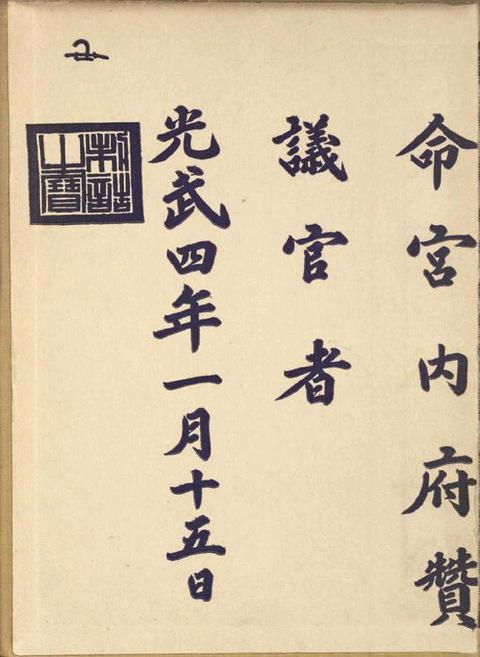 命宮內府贊
議官者
光武四年一月十五日
制誥之寶